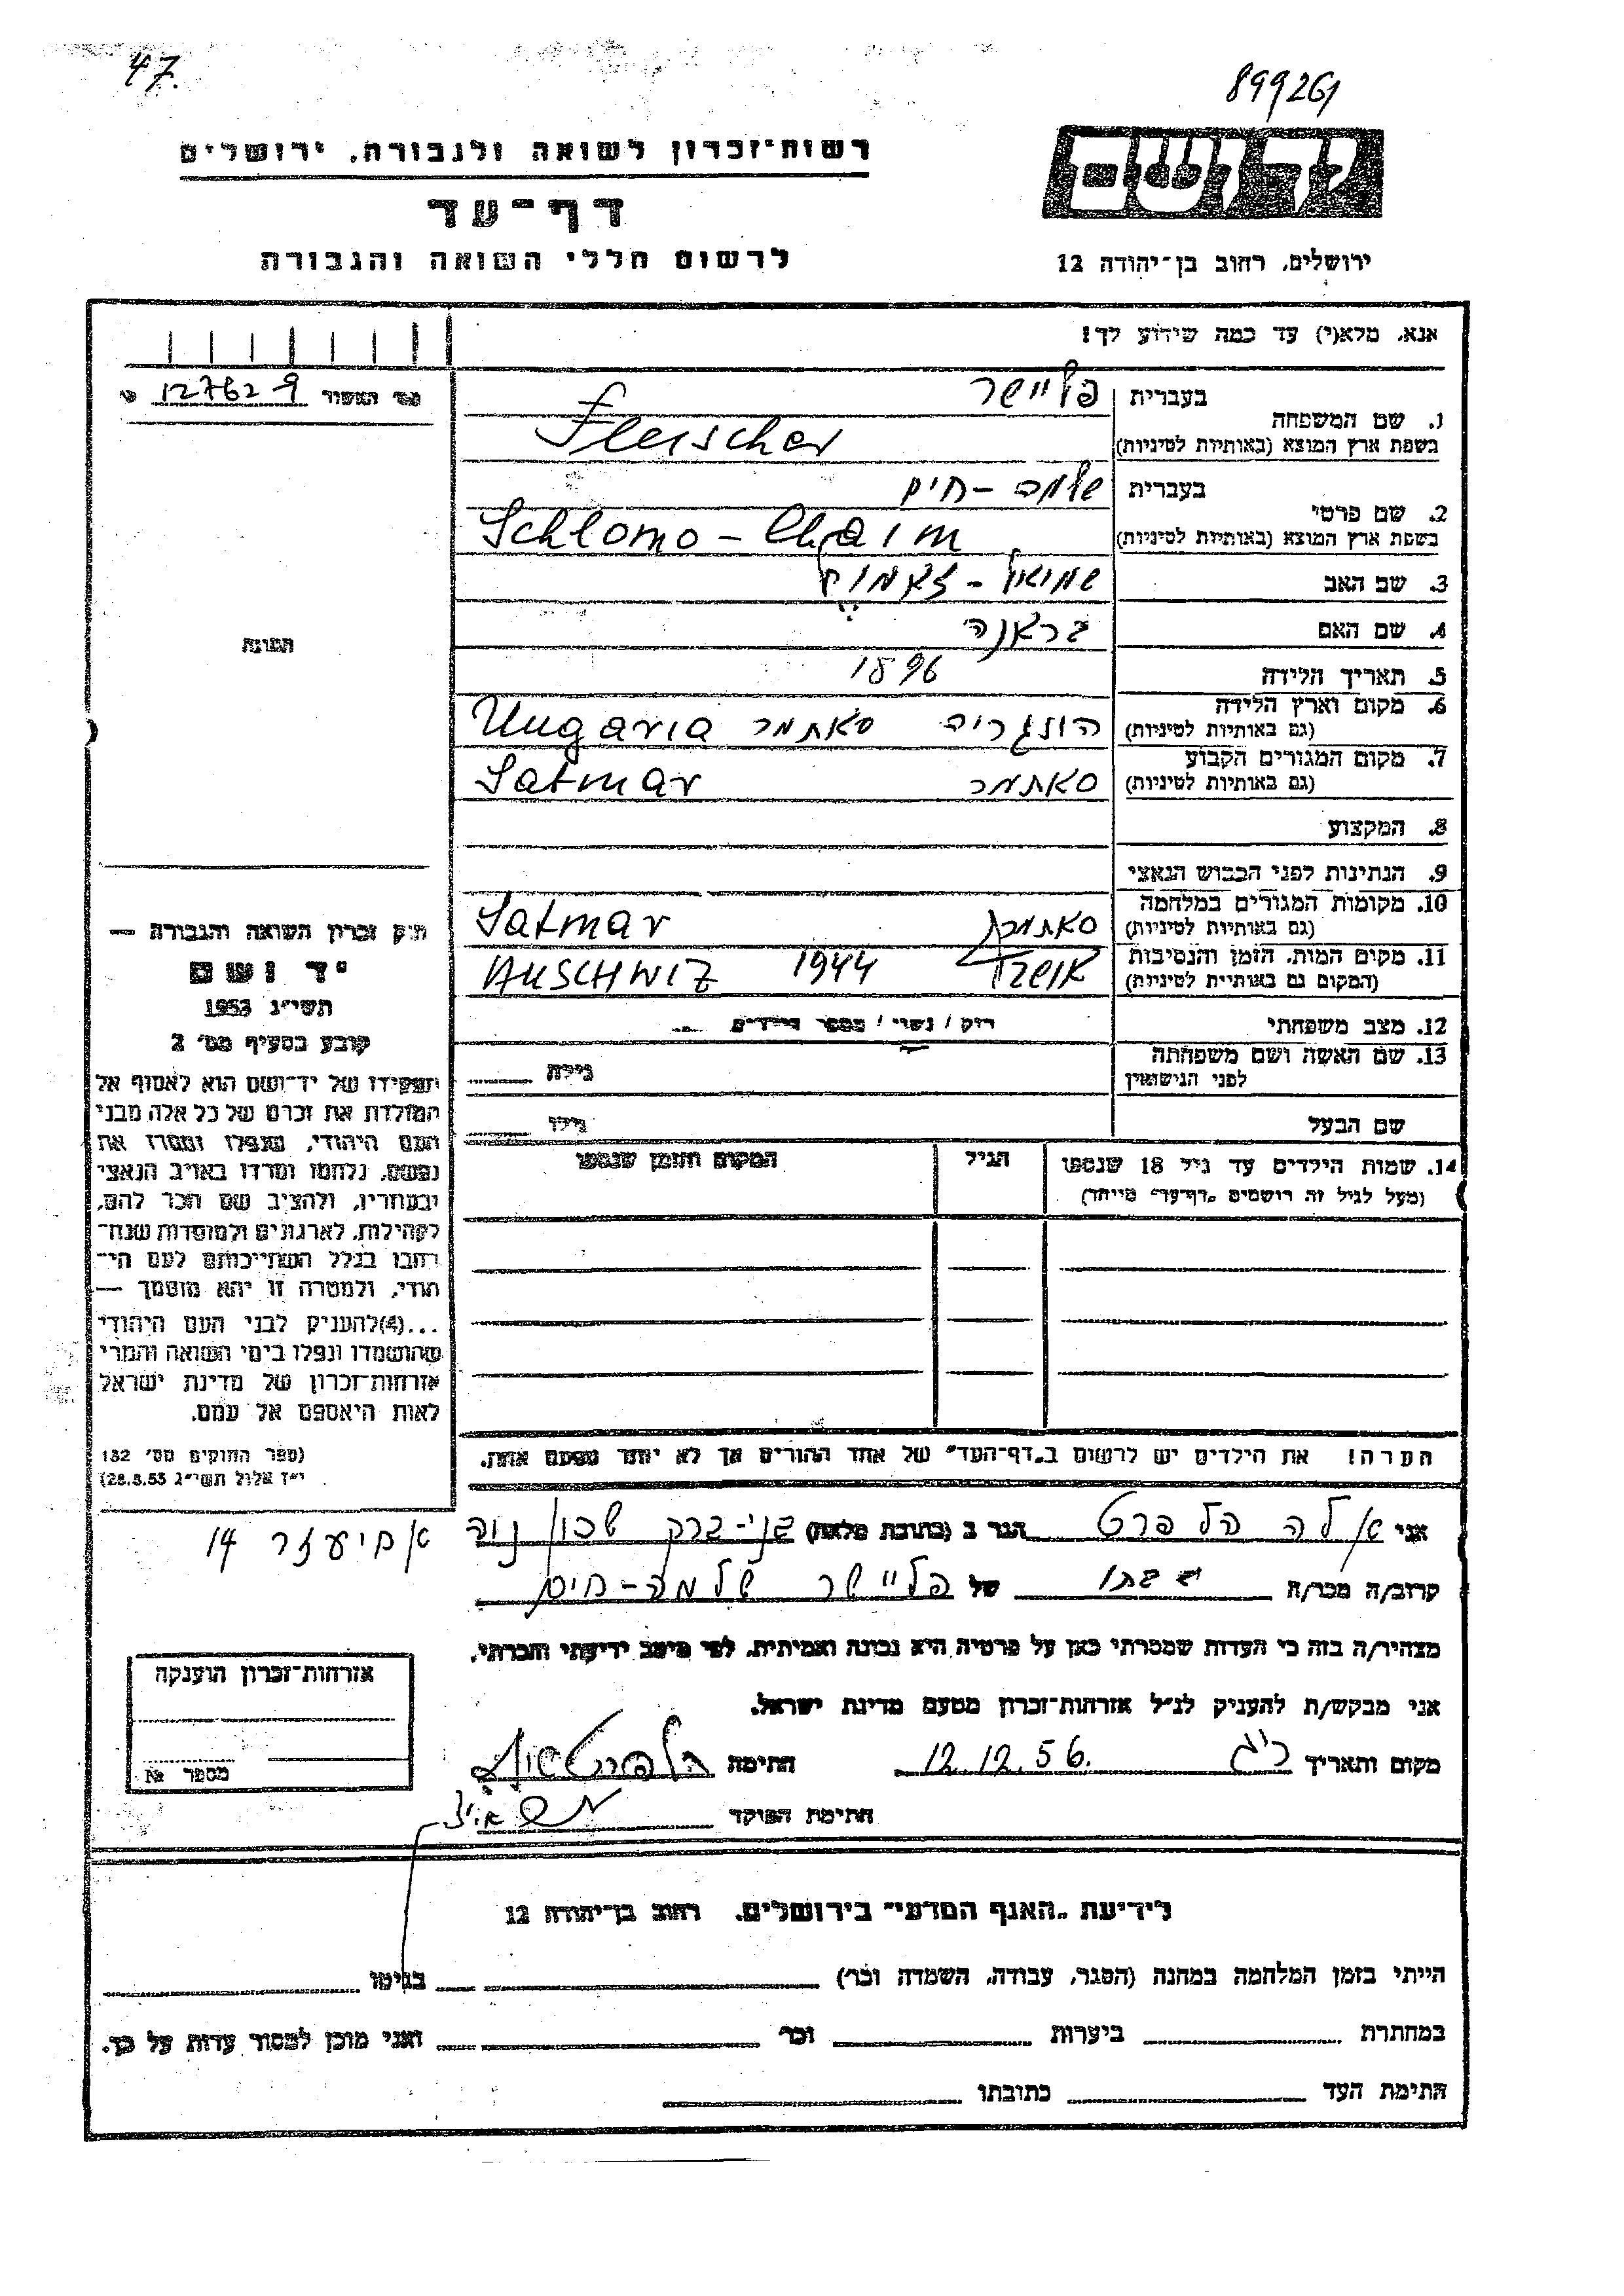 47.
899261
רשות־זכרון לשואה ולגבורה, ירושלים
יד ושם
דף־עד
לרשום חללי השואה והגבורה
ירושלים, רחוב בן־יהודה 12
אנא, מלא(י) עד כמה שידוע לך!
מס׳ האשור 127629
1. שם המשפחה
בעברית פליישר
בשפת ארץ המוצא (באותיות לטיניות) Fleischer
2. שם פרטי
בעברית שלמה - חיים
בשפת ארץ המוצא (באותיות לטיניות) Schlomo - Chaim
3. שם האב שמואל -
4. שם האם בראנה
5. תאריך הלידה 1896
6. מקום וארץ הלידה (גם באותיות לטיניות) הונגריה סאתמר Ungaria
7. מקום המגורים הקבוע (גם באותיות לטיניות) סאתמר Satmar
8. המקצוע
9. הנתינות לפני הכבוש הנאצי
10. מקומות המגורים במלחמה (גם באותיות לטיניות) סאתמר Satmar
11. מקום המות, הזמן והנסיבות (המקום גם באותיות לטיניות) 1944 AUSCHWIZ
12. מצב משפחתי רוק / נשוי / מספר הילדים
13. שם האשה ושם משפחתה לפני הנישואין גילה
שם הבעל גילו
14. שמות הילדים עד גיל 18 שנספו הגיל המקום והזמן שנספו
(מעל לגיל זה רושמים „דף־עד״ מיוחד)
הערה! את הילדים יש לרשום ב„דף־העד״ של אחד ההורים אך לא יותר מפעם אחת.
התמונה
חוק זכרון השואה והגבורה —
יד ושם
תשי״ג 1953
קובע בסעיף מס׳ 2
תפקידו של יד־ושם הוא לאסוף אל
המולדת את זכרם של כל אלה מבני
העם היהודי, שנפלו ומסרו את
נפשם, נלחמו ומרדו באויב הנאצי
ובעוזריו, ולהציב שם וזכר להם,
לקהילות, לארגונים ולמוסדות שנח־
רבו בגלל השתייכותם לעם הי־
הודי, ולמטרה זו יהא מוסמך —
...(4)להעניק לבני העם היהודי
שהושמדו ונפלו בימי השואה והמרי
אזרחות־זכרון של מדינת ישראל
לאות היאספם אל עמם.
(ספר החוקים מס׳ 132
י״ז אלול תשי״ג 28.8.53)
אני אלה הלפרט הגר ב (כתובת מלאה) בני-ברק שכון נוה
אחיעזר 14
קרוב/ה מכר/ה של פליישר שלמה-חיים
מצהיר/ה בזה כי העדות שמסרתי כאן על פרטיה היא נכונה ואמיתית, לפי מיטב ידיעתי והכרתי.
אני מבקש/ת להעניק לנ״ל אזרחות־זכרון מטעם מדינת ישראל.
מקום ותאריך 12.12.56. חתימה
חתימת הפוקד
אזרחות־זכרון הוענקה
מספר №
לידיעת „האגף המדעי״ בירושלים, רחוב בן־יהודה 12
הייתי בזמן המלחמה במחנה (הסגר, עבודה, השמדה וכו׳) בגיטו
במחתרת ביערות וכו׳ ואני מוכן למסור עדות על כך.
חתימת העד כתובתו